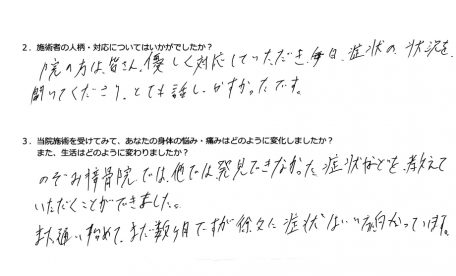 2．施術者の人柄・対応についてはいかがでしたか？
院の方は、皆さん、優しく対応していただき、毎日、症状の状況を、
聞いてくださり、とても話しやすかったです。
3．当院施術を受けてみて、あなたの身体の悩み・痛みはどのように変化しましたか？
また、生活はどのように変わりましたか？
のぞみ接骨院では、他では発見できなかった症状などを、教えて
いただくことができました。
また、通い始めて、まだ数ヶ月ですが徐々に症状はいい方向に向かっています。